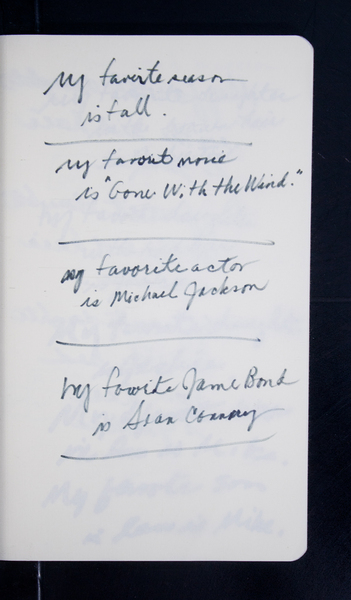 my favorite season
is fall.
my favorit movie
is "Gone With the Wind."
my favorite actor
is Michael Jackson
my favorite Jame Bond
is Sean Connery
My favorite son
is